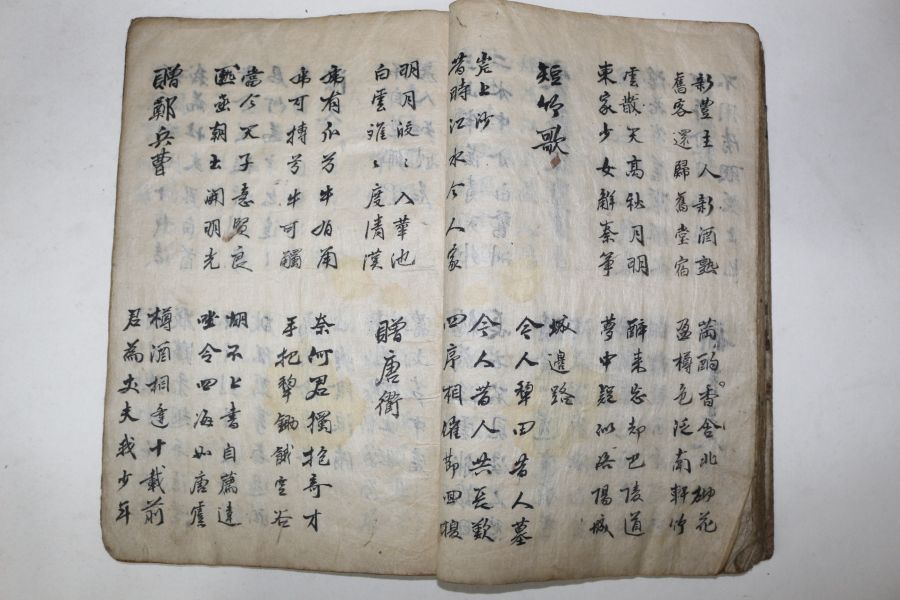 新豐主人新酒熟 滿酌香含北砌花
舊客還歸舊堂宿 盈樽色泛南軒竹
雲散天高秋月明 醉來忘却巴陵道
東家少女解秦箏 夢中疑似洛陽城
短竹歌 城邊路
今人犁田昔人墓
岸上沙 今人昔人共長歎
昔時江水今人家 四序相催節回換
明月皎〻入華池
白雲離〻度清漢 贈唐衢
虎有爪兮牛有角 奈何君獨抱奇才
虎可搏兮牛可觸 手把犁鋤餓空谷
當今天子急賢良 胡不上書自薦達
匭函朝出開明光 坐令四海如唐虞
贈鄭兵曹 樽酒相逢十載前
君為丈夫我少年